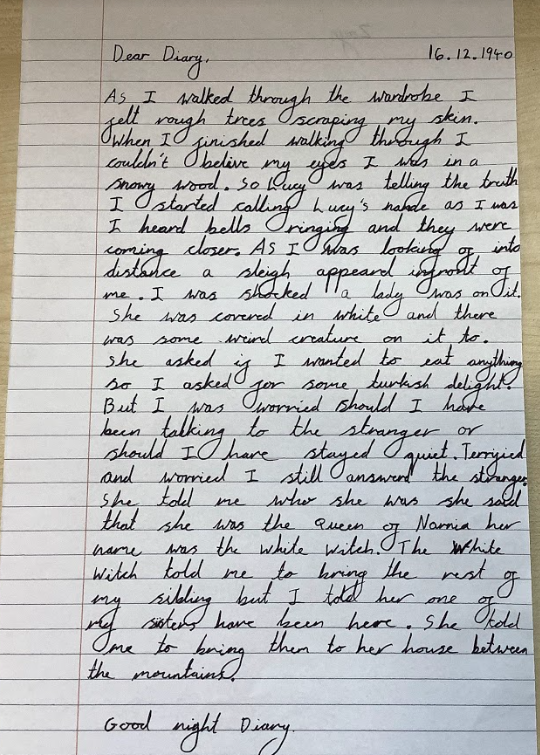 Dear Diary, 16.12.1940
As I walked through the wardrobe I
felt rough trees scraping my skin.
When I finished walking through I
couldn't belive my eyes I was in a
snowy wood. So Lucy was telling the truth
I started calling Lucy's name as I was
I heard bells ringing and they were
coming closer. As I was looking of into
distance a sleigh appeard infront of
me. I was shocked a lady was on it.
She was covered in white and there
was some weird creature on it to.
She asked if I wanted to eat anything
so I asked for some turkish delight.
But I was worried should I have
been talking to the stranger or
should I have stayed quiet. Terrified
and worried I still answerd the stranger.
She told me who she was she said
that she was the Queen of Narnia her
name was the white witch. The White
Witch told me to bring the rest of
my sibling but I told her one of
my sisters have been here. She told
me to bring them to her house between
the mountains.
Good night Diary.